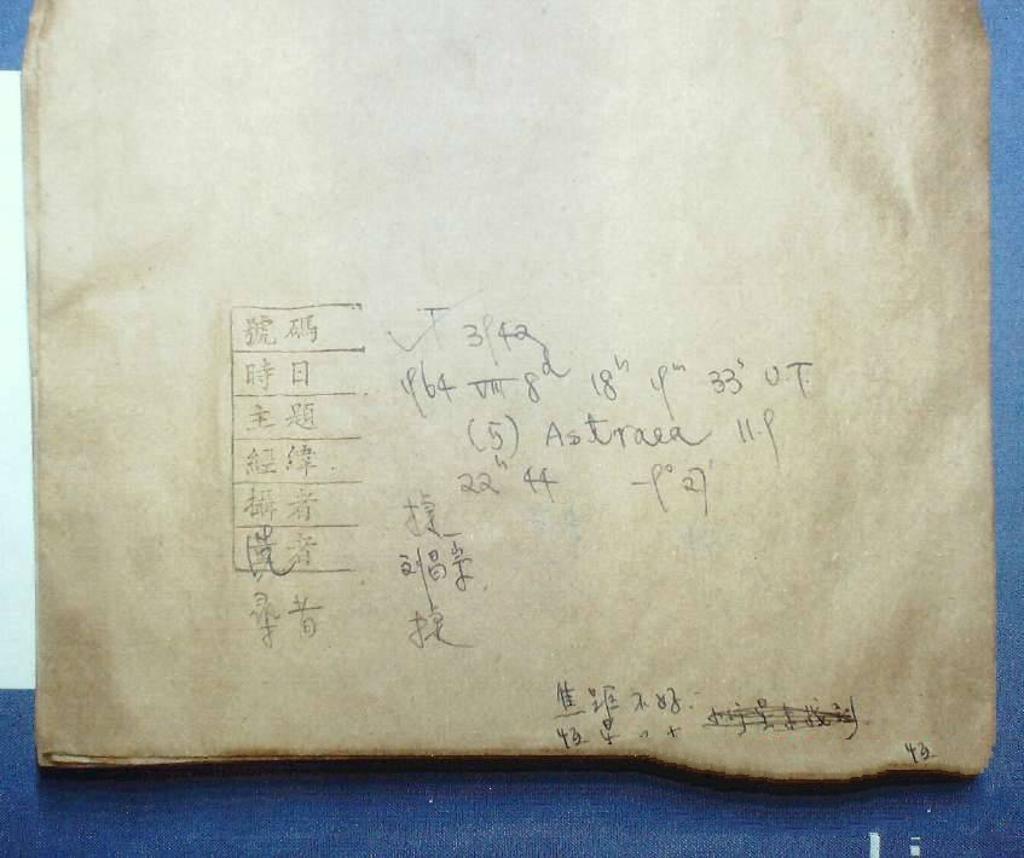 號碼 T 3942
時日 1964 VIII 8d 18h 9m 33s U.T.
主題 (5) Astraea 11.9
經緯 22h 44 -9° 27'
攝者
者 刘昌
尋者
焦距不好.
恒星 " +
恒